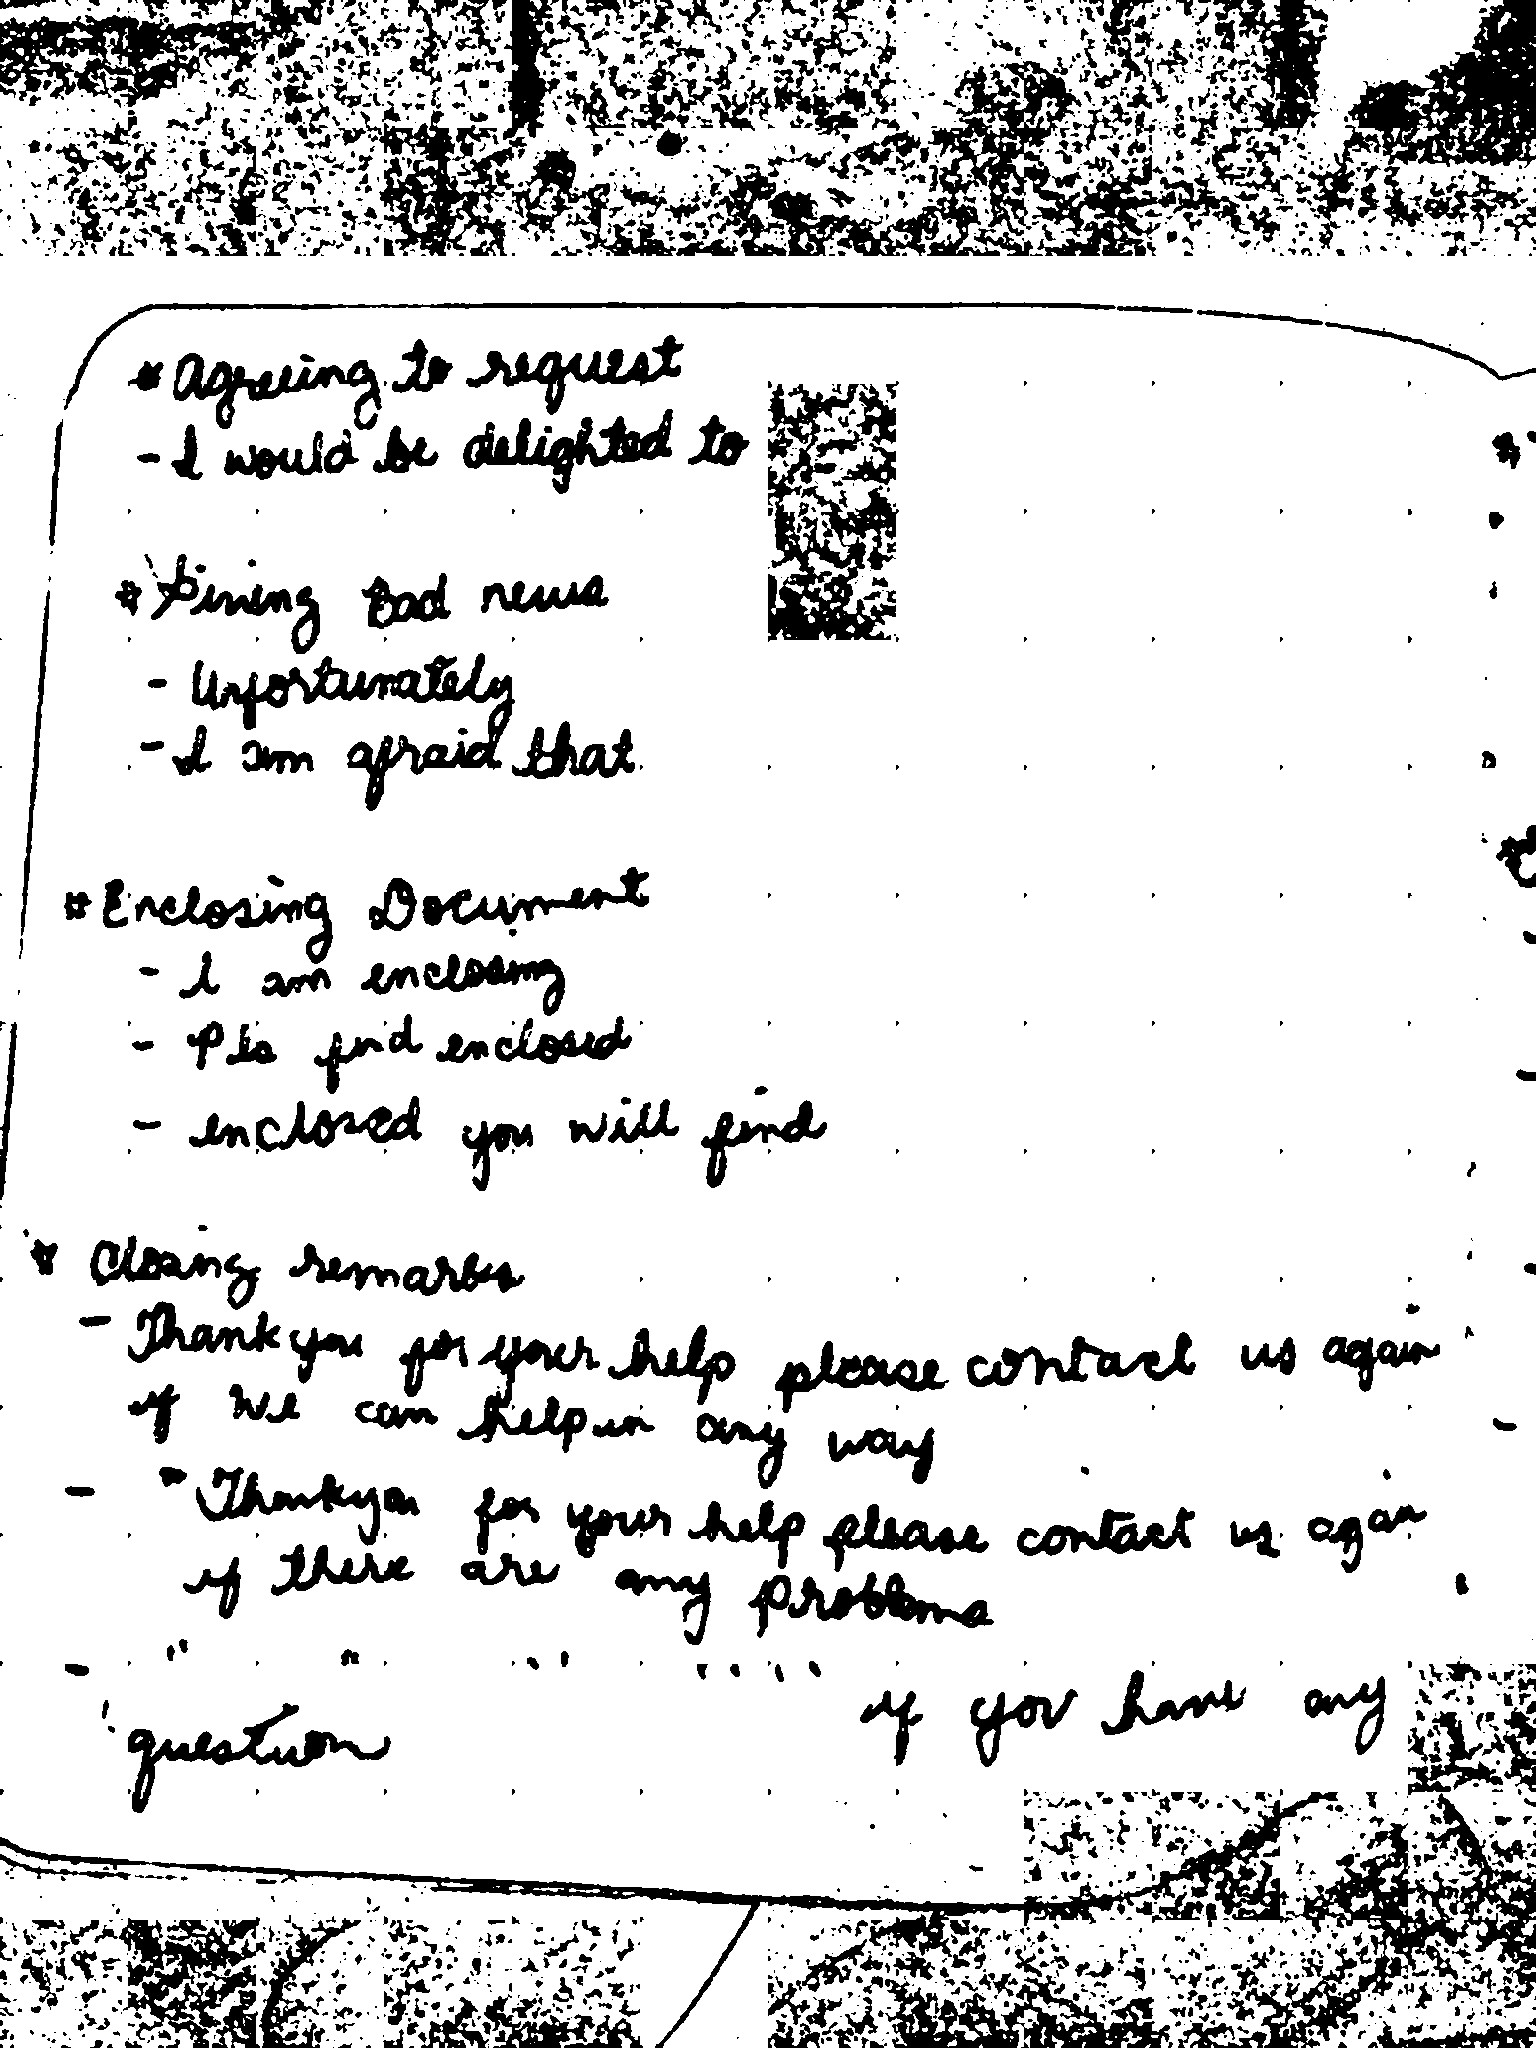 * Agreeing to request
- I would be delighted to
* Giving bad news
- Unfortunately
- I am afraid that
* Enclosing Document
- I am enclosing
- Pls find enclosed
- enclosed you will find
* Closing remarks
- Thankyou for your help please contact us again
if we can help in any way
- " Thankyou for your help please contact us again
if there are any problems
- " " " " " if you have any
question